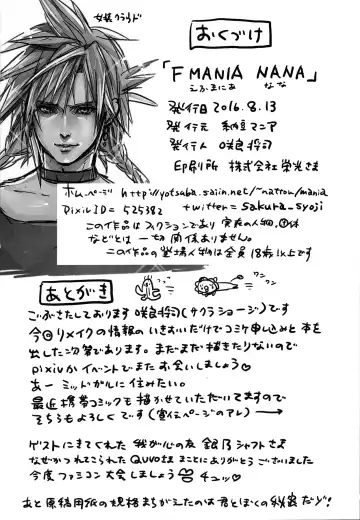 女装クラウド
おくづけ
「F MANIA NANA」
えふまにあ なな
発行日 2016.8.13
発行元 納豆マニア
発行人 咲良将司
印刷所 株式会社栄光さま
ホームページ http://yotsuba.saiin.net/~nattou/mania
Pixiv ID= 525382 twitter= sakura_syoji
この作品はフィクションであり 実在の人物、団体
などとは一切関係ありません。
この作品の登場人物は全員18歳以上です
あとがき
クェ
ワンワン
ごぶさたしております 咲良将司(サクラショージ)です
今回リメイクの情報のいきおいだけでコミケ申し込みと本を
出した次第であります。まだまだ描きたりないので
pixivかイベントでまたお会いしましょう♡
あー ミッドガルに住みたい。
最近携帯コミックも描かせていただいてますので
そちらもよろしくです(宣伝ページのアレ)→
ゲストにきてくれた 我が心の友 銀乃シャフトさま
なぜかつれてこられたQuvoさま まことにありがとうございました
今度ファミコン大会しましょう チュッ♡
あと原稿用紙の規格まちがえたのは君とぼくの秘密だぞ!